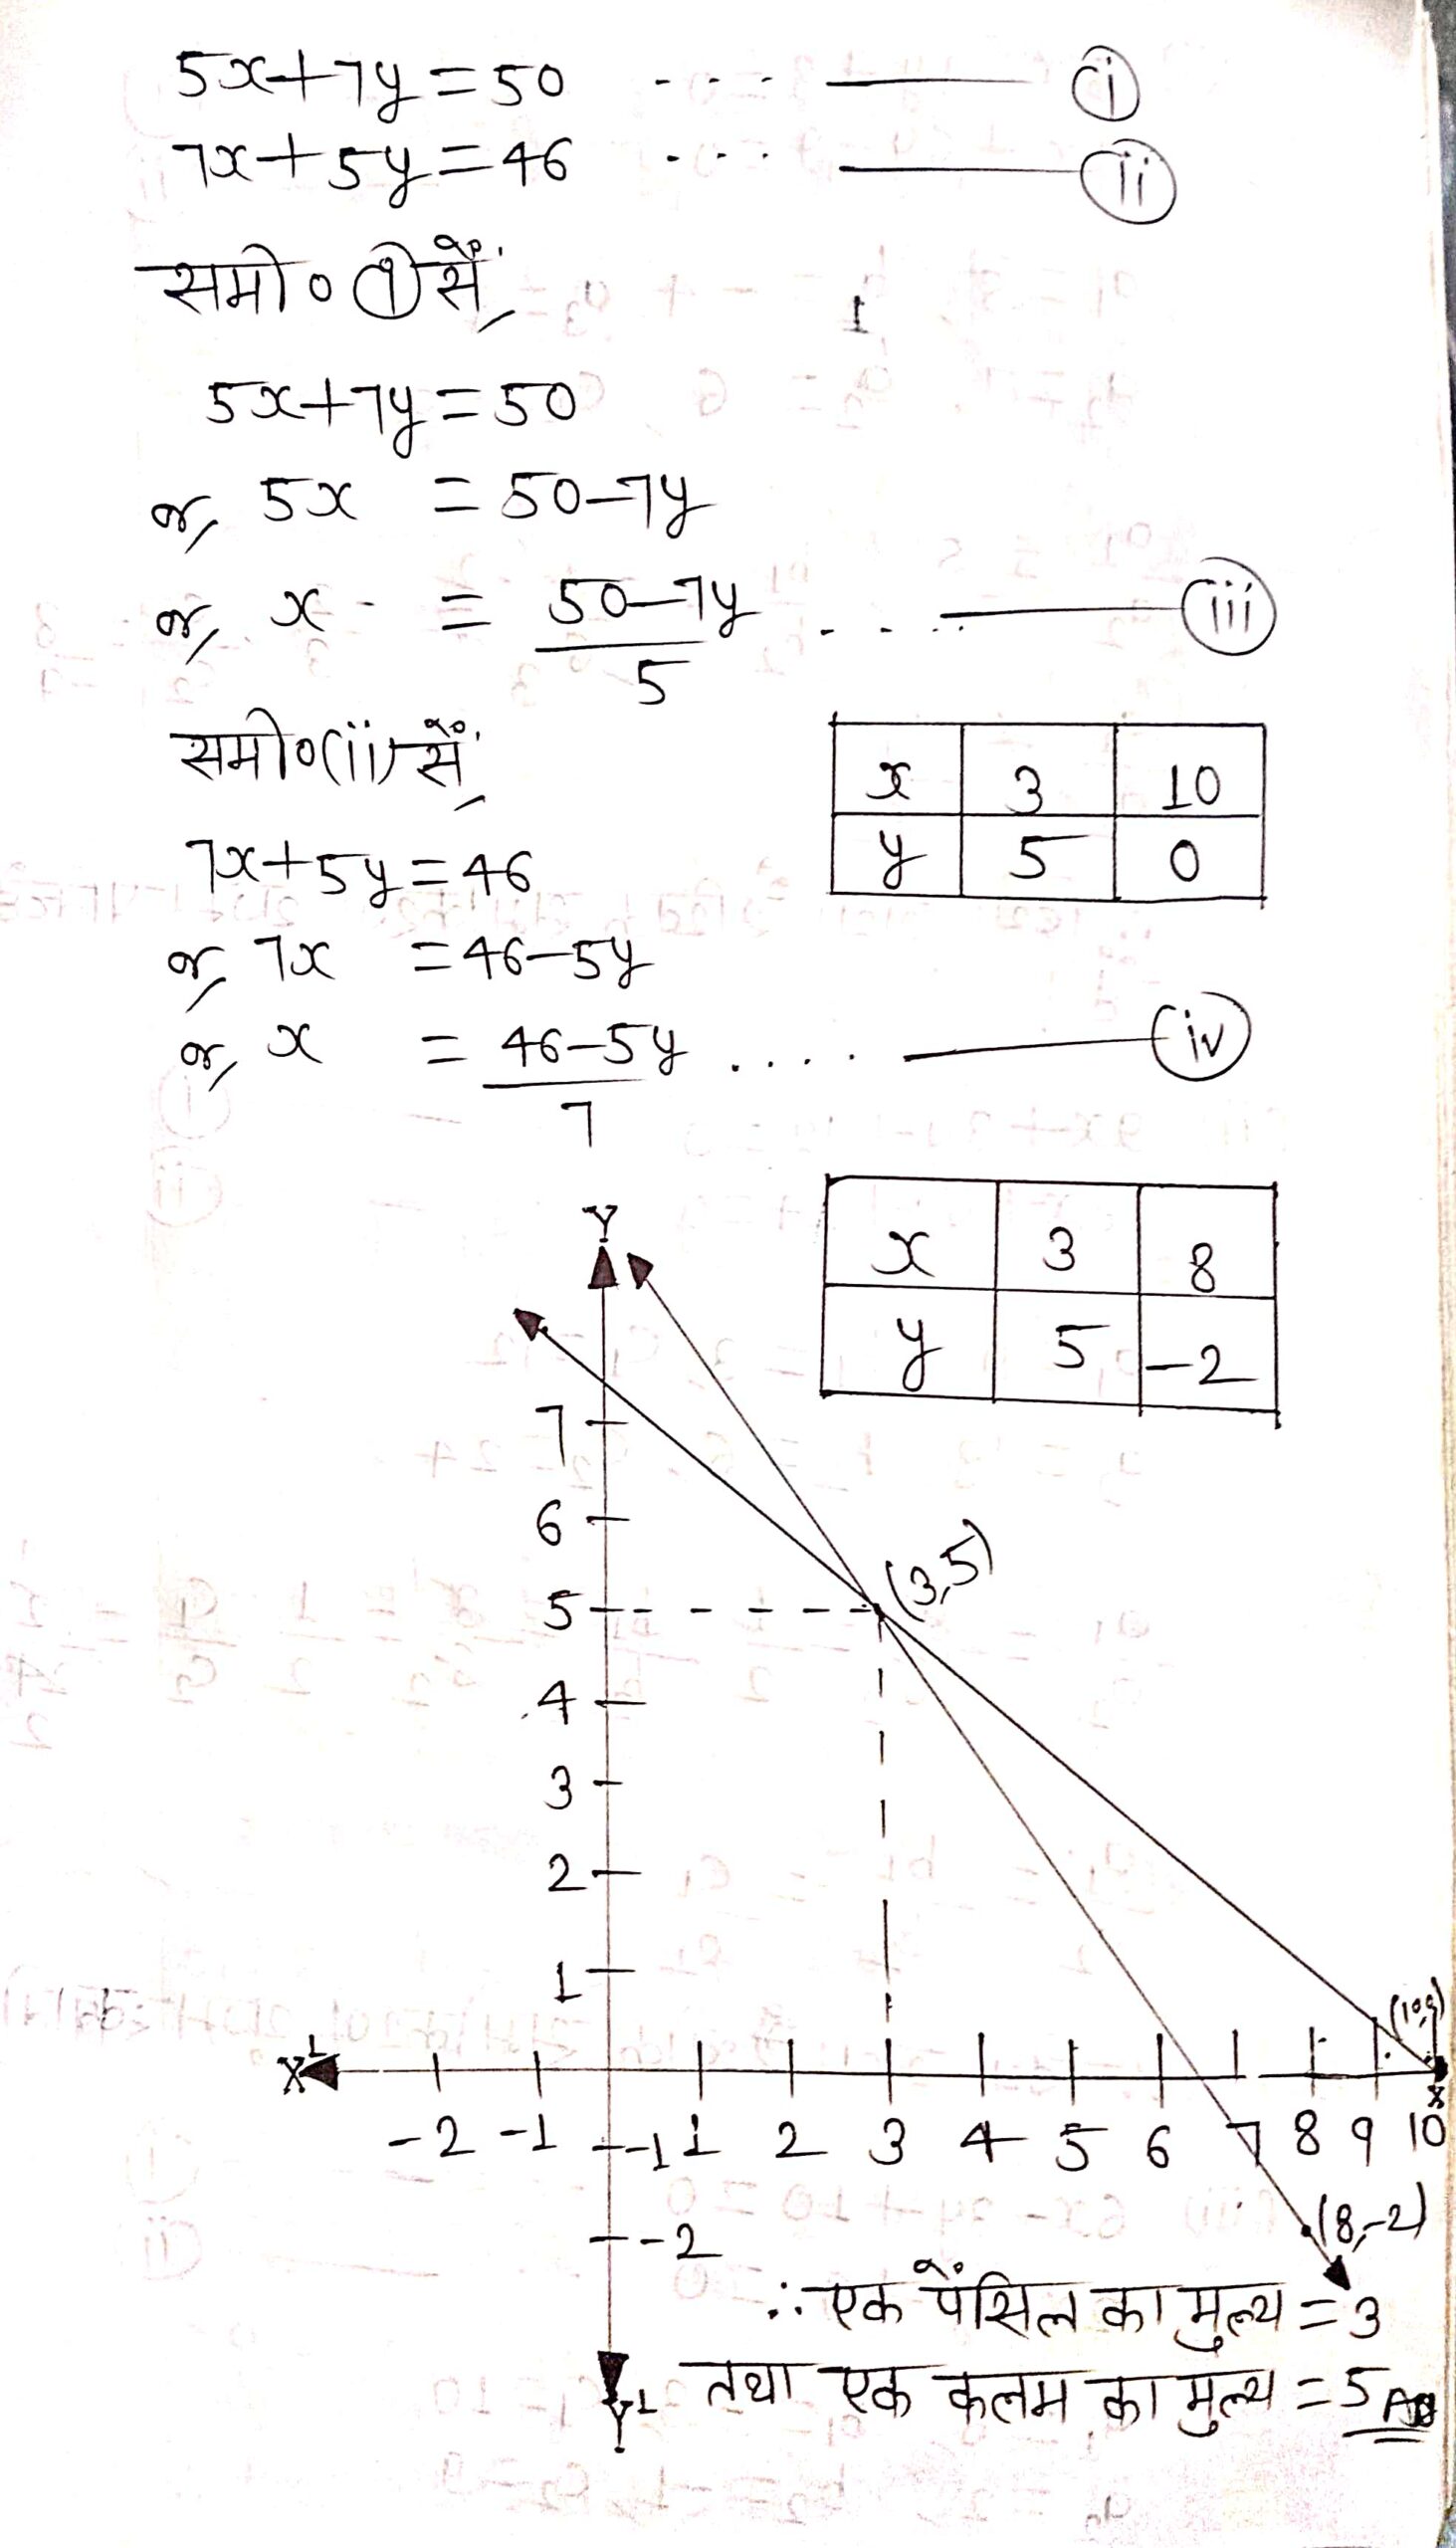 5x+7y=50 ... — (i)
7x+5y=46 ... — (ii)
समी० (i) सें,
5x+7y=50
or, 5x = 50-7y
or, x = (50-7y)/5 .... — (iii)
समी०(ii) सें,
x 3 10
y 5 0
7x+5y=46
or, 7x = 46-5y
or, x = (46-5y)/7 .... — (iv)
x 3 8
y 5 -2
Y
7
6
(3,5)
5
4
3
2
1
(10,0)
X¹
X
-2 -1 -1 1 2 3 4 5 6 7 8 9 10
(8,-2)
-2
∴ एक पेंसिल का मुल्य = 3
तथा एक कलम का मुल्य = 5
Y¹